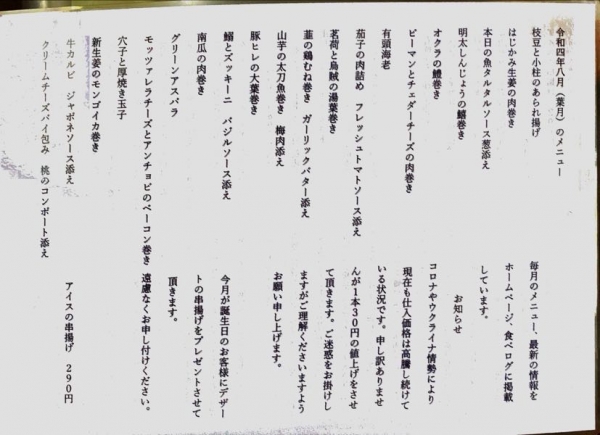 令和四年八月（葉月）のメニュー
枝豆と小柱のあられ揚げ
はじかみ生姜の肉巻き
本日の魚タルタルソース葱添え
明太しんじょうの鱚巻き
オクラの鱧巻き
ピーマンとチェダーチーズの肉巻き
有頭海老
茄子の肉詰め　フレッシュトマトソース添え
茗荷と烏賊の湯葉巻き
韮の鶏むね巻き　ガーリックバター添え
山芋の太刀魚巻き　梅肉添え
豚ヒレの大葉巻き
鰯とズッキーニ　バジルソース添え
南瓜の肉巻き
グリーンアスパラ
モッツァレラチーズとアンチョビのベーコン巻き
穴子と厚焼き玉子
新生姜のモンゴイカ巻き
牛カルビ　ジャポネソース添え
クリームチーズパイ包み　桃のコンポート添え
毎月のメニュー、最新の情報を
ホームページ、食べログに掲載
しています。
お知らせ
コロナやウクライナ情勢により
現在も仕入価格は高騰し続けて
いる状況です。申し訳ありませ
んが１本３０円の値上げをさせ
て頂きます。ご迷惑をお掛けし
ますがご理解くださいますよう
お願い申し上げます。
今月が誕生日のお客様にデザー
トの串揚げをプレゼントさせて
頂きます。
遠慮なくお申し付けください。
アイスの串揚げ　２９０円